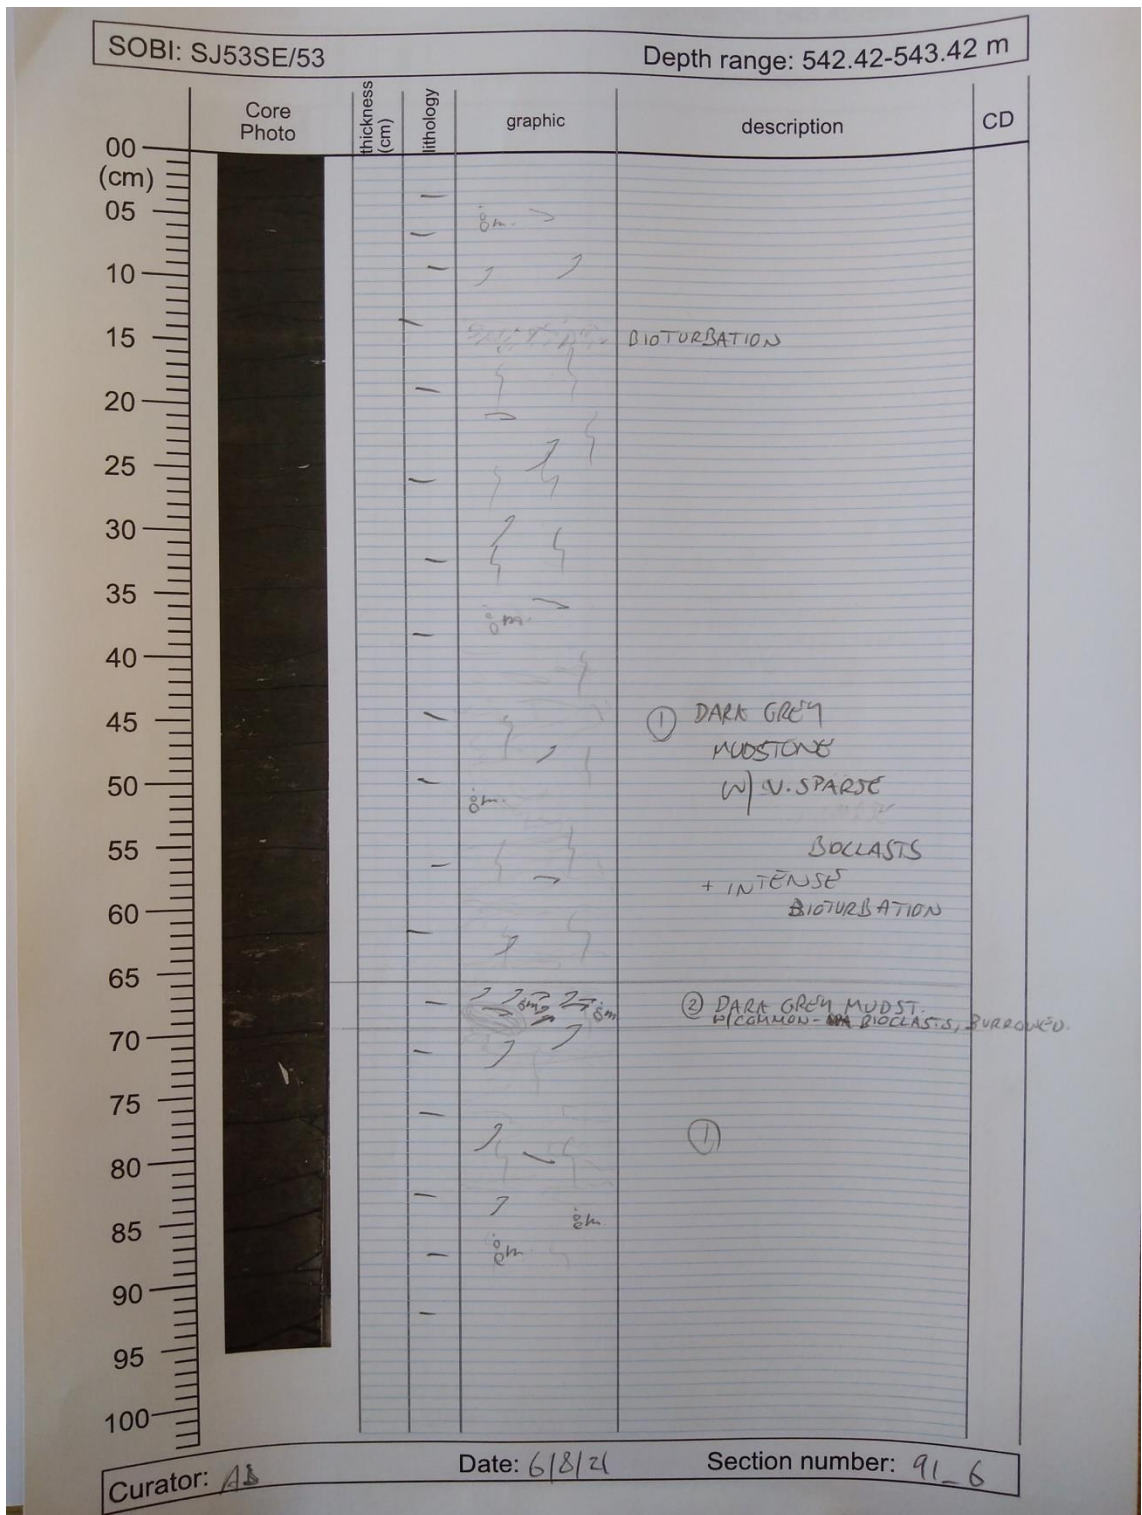 SOBI: SJ53SE/53
Depth range: 542.42-543.42 m
Core
Photo
thickness
(cm)
lithology
graphic
description
CD
00
(cm)
05
10
15
20
25
30
35
40
45
50
55
60
65
70
75
80
85
90
95
100
BIOTURBATION
① DARK GREY
MUDSTONE
W/ V. SPARSE
BOCLASTS
+ INTENSE
BIOTURBATION
② DARK GREY MUDST.
W/COMMON- BIOCLASTS, BURROWED.
①
Curator:
Date: 6/8/21
Section number: 91_6